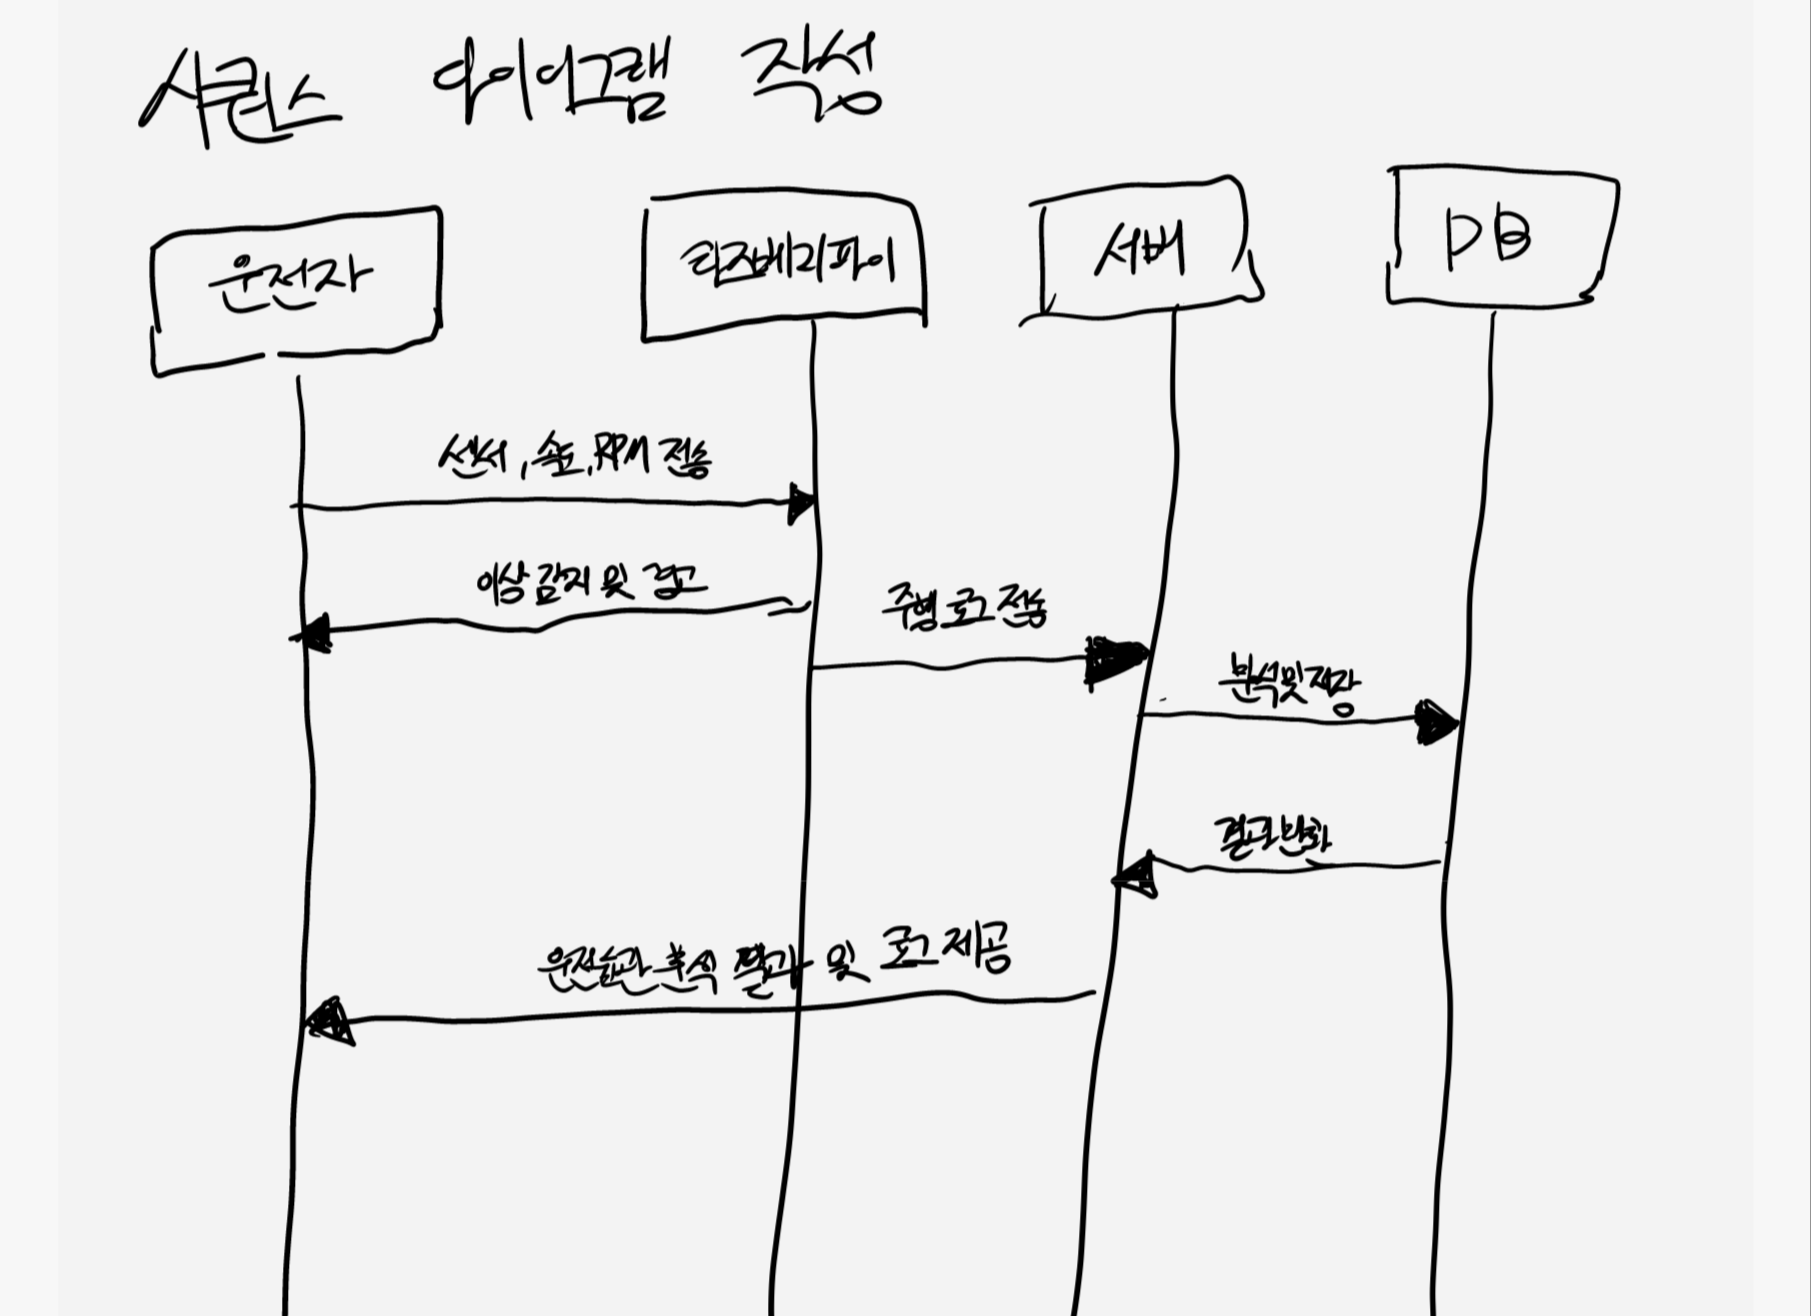 시퀀스 다이어그램 작성
운전자
라즈베리파이
서버
DB
센서, 속도, RPM 전송
이상 감지 및 경고
주행 로그 전송
분석 및 저장
결과 반환
운전습관 분석 결과 및 로그 제공